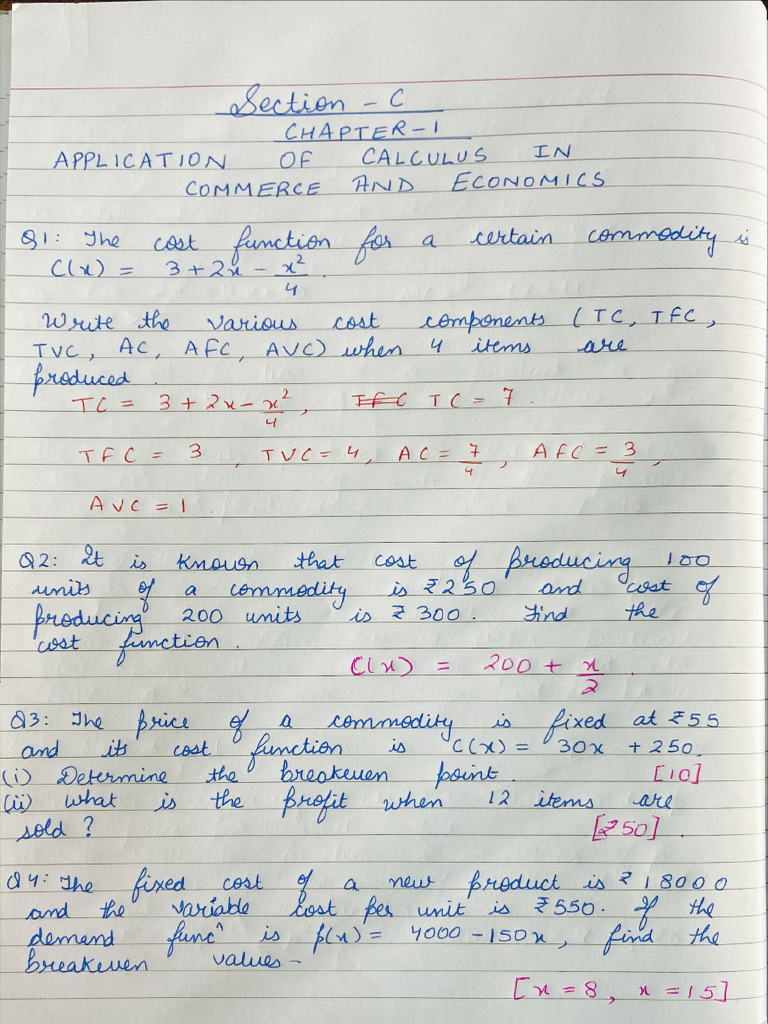 Section - C
CHAPTER-1
APPLICATION OF CALCULUS IN
COMMERCE AND ECONOMICS
Q1: The cost function for a certain commodity is
C(x) = 3 + 2x - x²/4.
Write the various cost components (TC, TFC,
TVC, AC, AFC, AVC) when 4 items are
produced.
TC = 3 + 2x - x²/4, TFC TC = 7.
TFC = 3, TVC = 4, AC = 7/4, AFC = 3/4,
AVC = 1.
Q2: It is known that cost of producing 100
units of a commodity is ₹250 and cost of
producing 200 units is ₹300. Find the
cost function.
C(x) = 200 + x/2.
Q3: The price of a commodity is fixed at ₹55
and its cost function is C(x) = 30x + 250.
(i) Determine the breakeven point. [10]
(ii) What is the profit when 12 items are
sold? [₹50].
Q4: The fixed cost of a new product is ₹18000
and the variable cost per unit is ₹550. If the
demand funcⁿ is p(x) = 4000 - 150x, find the
breakeven values-
[x = 8, x = 15]